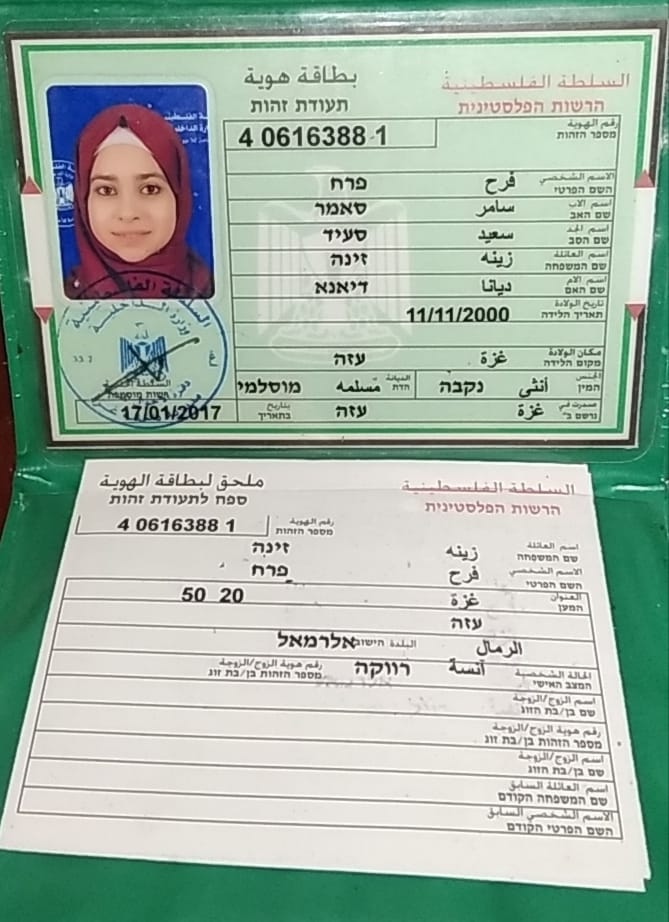 بطاقة هوية
תעודת זהות
السلطة الفلسطينية
הרשות הפלסטינית
رقم الهوية
מספר הזהות
4 0616388 1
الاسم الشخصي
השם הפרטי
فرح
פרח
اسم الاب
שם האב
سامر
סאמר
اسم الجد
שם הסב
سعيد
סעיד
اسم العائلة
שם המשפחה
زينه
זינה
اسم الام
שם האם
ديانا
דיאנא
تاريخ الولادة
תאריך הלידה
11/11/2000
مكان الولادة
מקום הלידה
غزة
עזה
الجنس
המין
أنثى
נקבה
الديانة
הדת
مسلمه
מוסלמי
صدرت في
נרשם ב־
غزة
עזה
بتاريخ
בתאריך
17/01/2017
السلطة الفلسطينية
وزارة الداخلية
ملحق لبطاقة الهوية
ספח לתעודת זהות
السلطة الفلسطينية
הרשות הפלסטינית
رقم الهوية
מספר הזהות
4 0616388 1
اسم العائلة
שם המשפחה
زينه
זינה
الاسم الشخصي
השם הפרטי
فرح
פרח
العنوان
המען
غزة
50 20
עזה
الرمال
البلدة הישוב
אלרמאל
الحالة الشخصية
המצב האישי
آنسة
רווקה
رقم هوية الزوج/الزوجة
מספר הזהות בן/בת זוג
اسم الزوج/الزوجة
שם בן/בת הזוג
رقم هوية الزوج/الزوجة
מספר הזהות בן/בת זוג
اسم الزوج/الزوجة
שם בן/בת הזוג
اسم العائلة السابق
שם המשפחה הקודם
الاسم الشخصي السابق
השם הפרטי הקודם